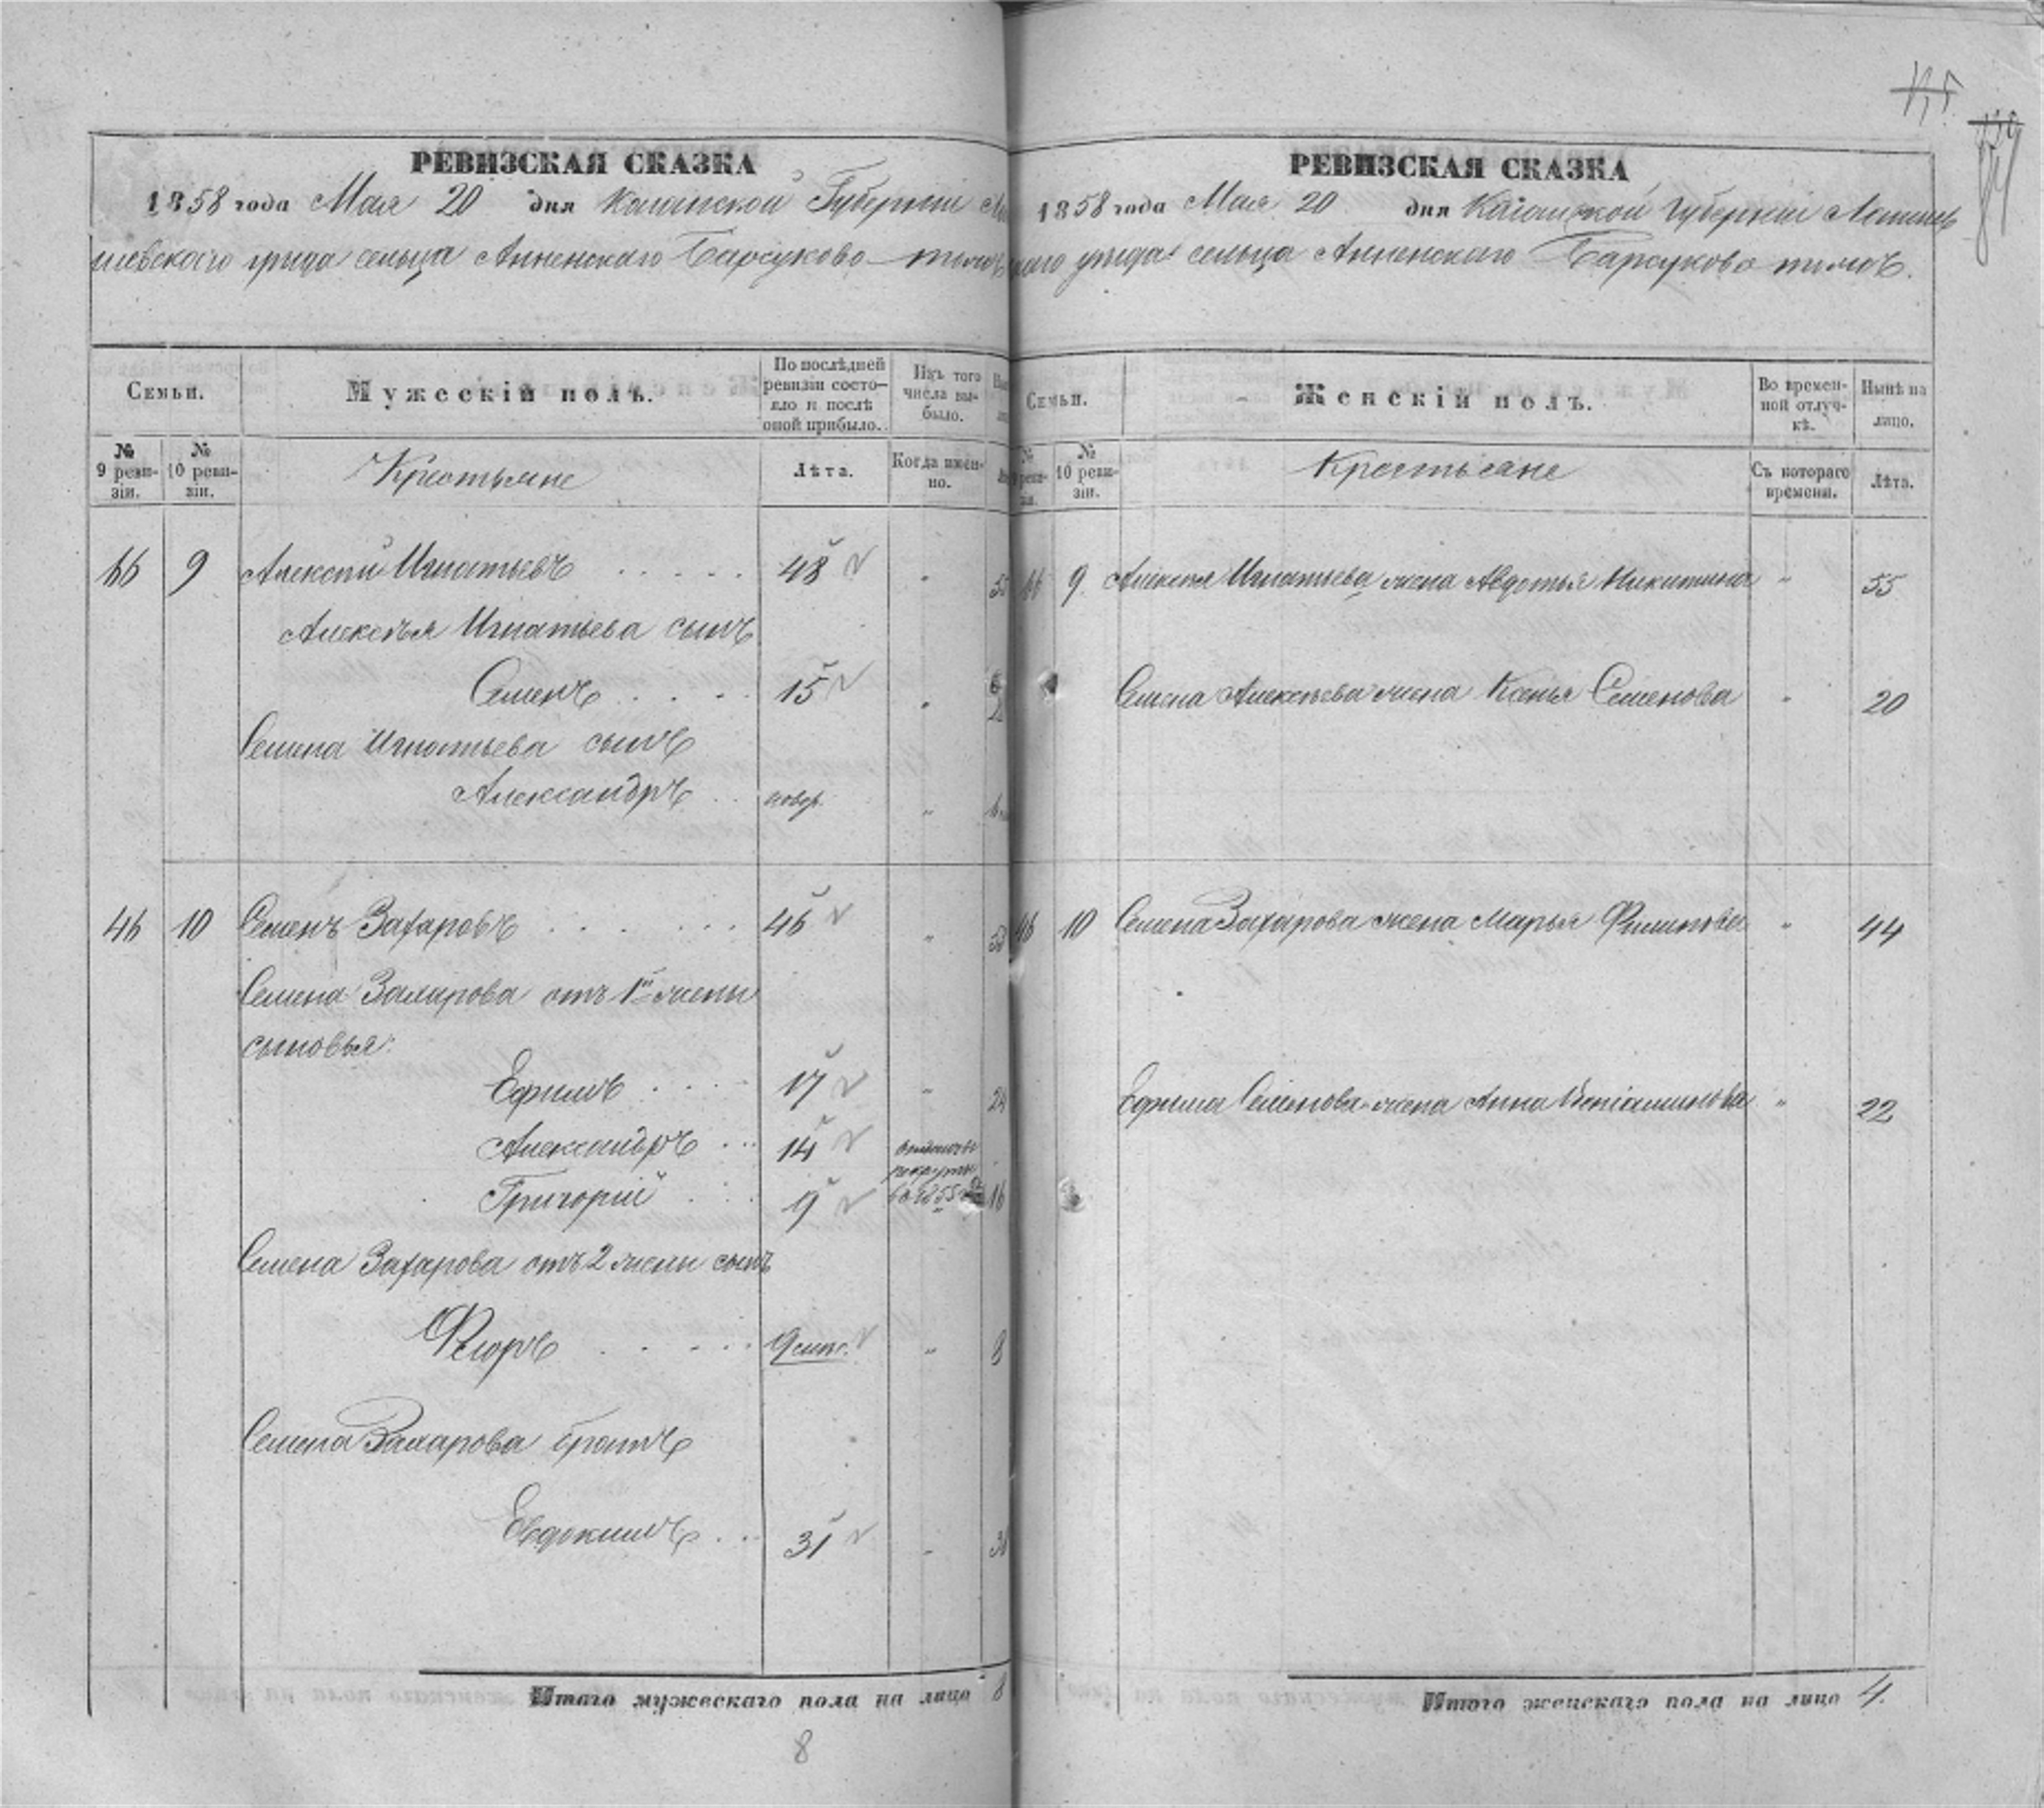 РЕВИЗСКАЯ СКАЗКА
1858 года Мая 20 дня Казанской Губерніи
шевскаго уѣзда сельца Анненскаго Барсуково тожъ
Семьи.
Мужескій полъ.
По послѣдней ревизіи состо-
яло и послѣ
оной прибыло.
Изъ того
числа вы-
было.
№
9 реви-
зіи.
№
10 реви-
зіи.
Крестьяне
Лѣта.
Когда имен-
но.
66 9 Алексѣй Игнатьевъ . . . . . 48 „ 55
Алексѣя Игнатьева сынъ
Семенъ . . . . 15 „
Семена Игнатьева сынъ
Александръ . . новор. „
46 10 Семенъ Захаровъ . . . . . . 46 „ 53
Семена Захарова отъ 1й жены
сыновья:
Ефимъ . . . . 17 „ 24
Александръ . . . 14 отданъ въ
рекруты
Григорій . . . 9 въ 1855 16
Семена Захарова отъ 2 жены сынъ
Ѳедоръ . . . . . „ 8
Семена Захарова братъ
Евдокимъ . . . 31 „ 38
Итого мужескаго пола на лицо 8
8
РЕВИЗСКАЯ СКАЗКА
1858 года Мая 20 дня Казанской Губерніи Лаишев
скаго уѣзда сельца Анненскаго Барсуково тожъ.
Семьи.
Женскій полъ.
Во времен-
ной отлуч-
кѣ.
Нынѣ на
лицо.
№
9 реви-
зіи.
№
10 реви-
зіи.
Крестьяне
Съ котораго
времени.
Лѣта.
66 9 Алексѣя Игнатьева жена Авдотья Никитина „ 55
Семена Алексѣева жена Ксенья Семенова „ 20
46 10 Семена Захарова жена Марья Филипова „ 44
Ефима Семенова жена Анна Веніаминова „ 22
Итого женскаго пола на лицо 4.